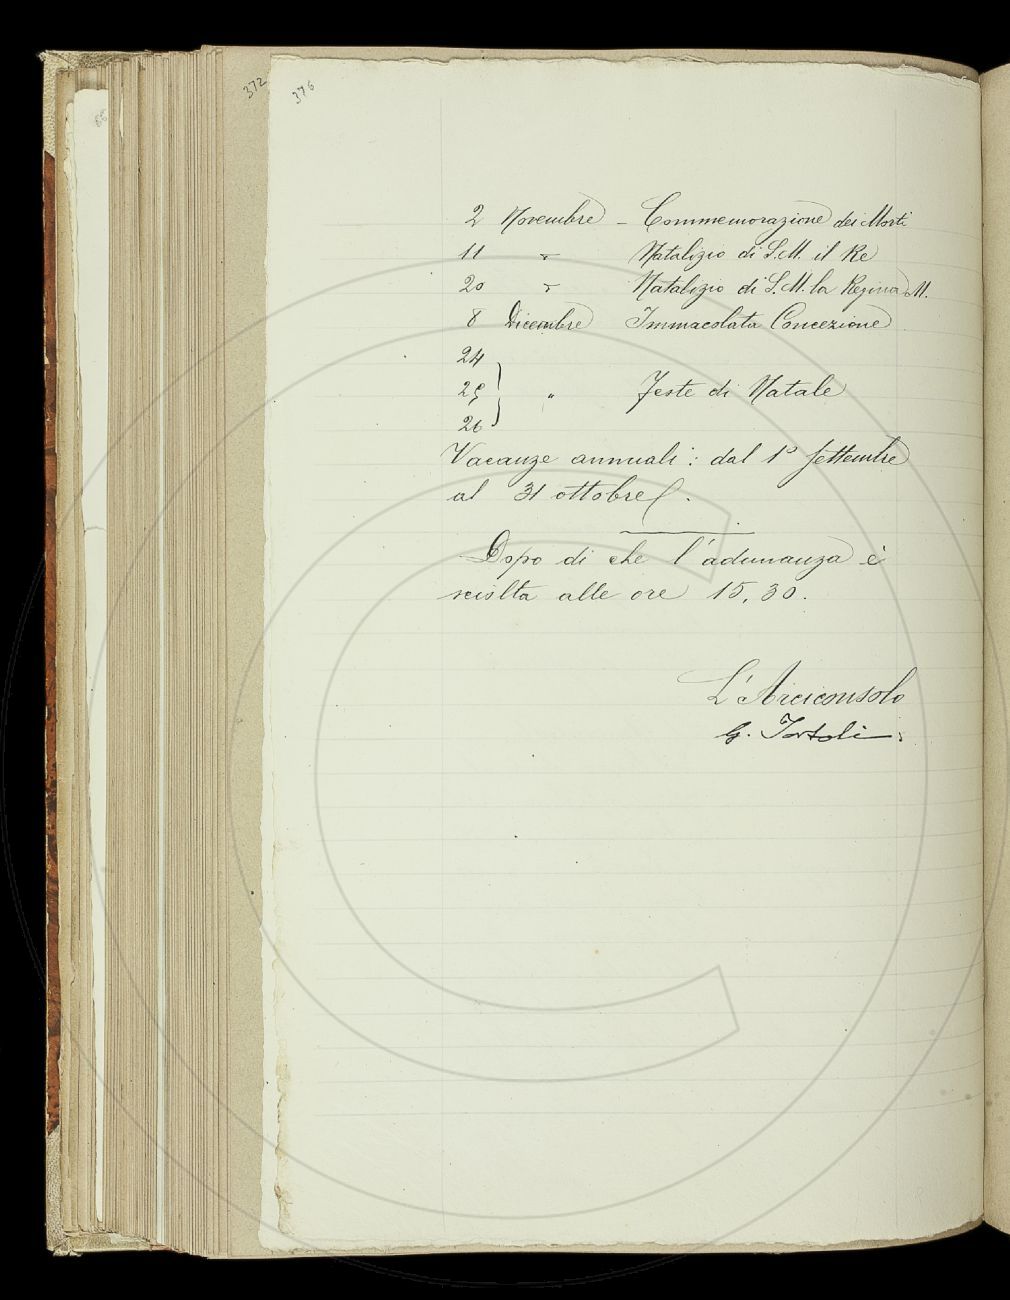 372
376
2 Novembre - Commemorazione dei Morti
11 " Natalizio di S. M. il Re
20 " Natalizio di S. M. la Regina M.
8 Dicembre Immacolata Concezione
24
25 " Feste di Natale
26
Vacanze annuali: dal 1° Settembre
al 31 ottobre.
Dopo di che l'adunanza è
sciolta alle ore 15,30.
L'Arciconsolo
G. Tortoli